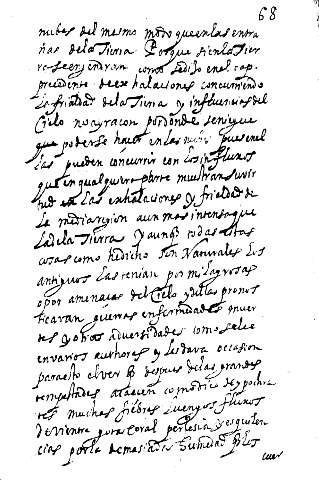 68
nubes del mesmo modo que en las entra
ñas de la Tierra Porque si en la Tier
ra se engendran como se dijo en el cap.
precedente de exhalaciones concurriendo
la frialdad de la Tierra y influencias del
Cielo no ay raçon por donde se niegue
que poderse hacer en las nubes pues en el
las pueden concurrir con los influxos
que en qualquiera parte muestran su vir
tud en las exhalaciones y frialdad de
la media region aun mas intensa que
la de la Tierra Y aunq todas estas
cosas como he dicho son Naturales Los
antiguos las tenian por milagrosas
o por amenaças del Cielo y dellas pronos
ticavan guerras enfermedades muer
tes y otras adversidades como se lee
en varios authores y les dava occasion
para esto el ver q despues de las grandes
tempestades ataecen como dice
tes muchas fiebres Luengos fluxos
de vientre gota coral perlesia y esquilen
cias por la demasiada humedad
cuer